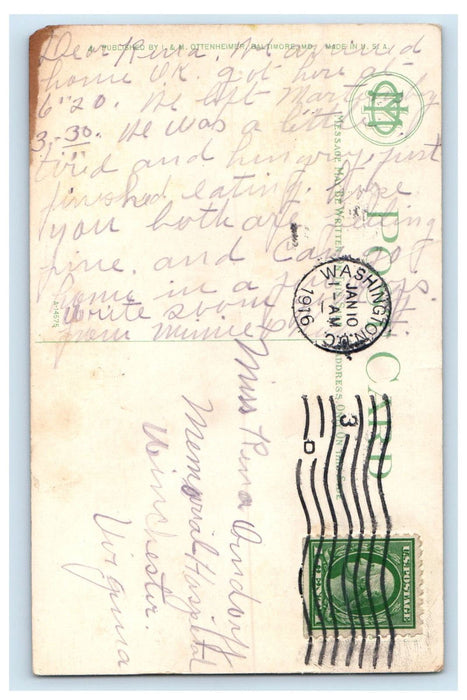 PUBLISHED BY I. & M. OTTENHEIMER, BALTIMORE, MD. MADE IN U. S. A.
Dear Rena, We arrived
home O.K. got here at
6"20. We left
3-30. We was a little
tired and hungry, just
finished eating. hope
you both are feeling
fine. and can go
home in a
write soon
from Minnie
A-14578
POST CARD
MESSAGE MAY BE WRITTEN
ADDRESS ONLY ON THIS SIDE
WASHINGTON, D.C.
JAN 10
1-AM
1916
3
D
U.S. POSTAGE
Miss Rena Orndorff
Memorial Hospital
Winchester.
Virginia